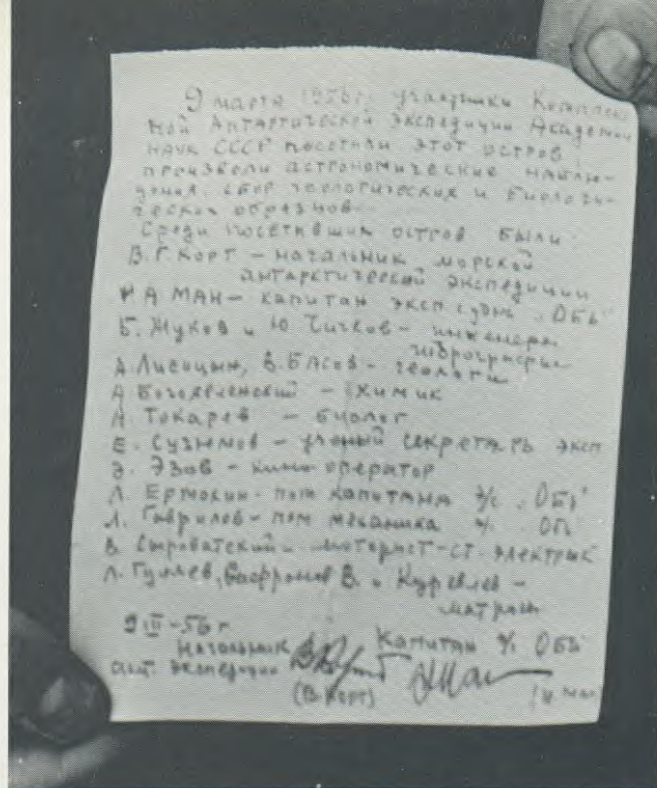 9 марта 1956 г. участники Комплекс
ной Антарктической Экспедиции Академии
наук СССР посетили этот остров,
произвели астрономические наблю-
дения, сбор геологических и биологи-
ческих образцов.
Среди посетивших остров были:
В. Г. Корт – начальник морской
антарктической экспедиции
И А МАН – капитан эксп судна "Обь"
Б. Жуков и Ю Чичков – инженеры
гидрографы
А. Лисицын, В. Басов – геологи
А Богоявленский – химик
А. Токарев – биолог
Е. Сузюмов – ученый секретарь эксп
Э. Эзов – кинооператор
Л. Ермохин – пом капитана э/с "Обь"
Л. Гаврилов – пом механика
В. Сыроватский – моторист – ст. электрик
Л. Гуляев, В. и Журавлев –
матросы
9 III – 56 г
Начальник Капитан "Обь"
ант. экспедиции
(В. Корт) И. Ман